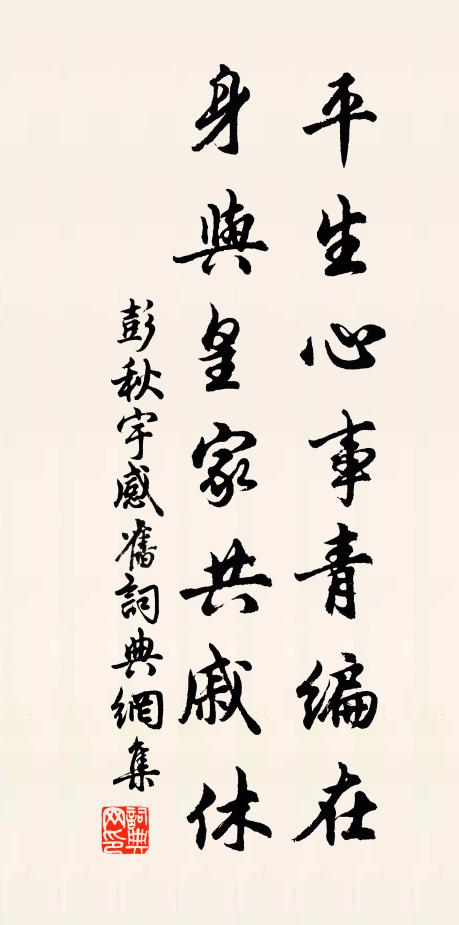 平生心事青編在
身與皇家共戚休
彭秋宇感舊詞典網集
詞典網印